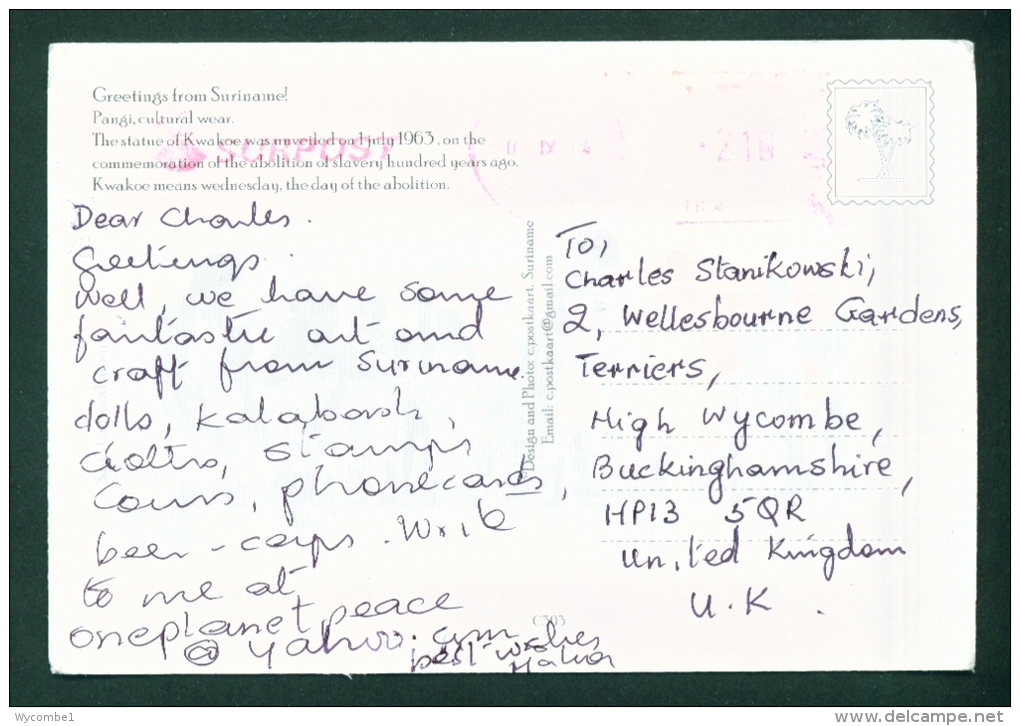 Greetings from Suriname!
Pangi, cultural wear.
The statue of Kwakoe was unveiled on 1 july 1963, on the
commemoration of the abolition of slavery hundred years ago.
Kwakoe means wednesday, the day of the abolition.
SURPOST
218
Dear Charles.
Greetings.
Well, we have some
fantastic art and
craft from Suriname.
dolls, kalabash,
stamps
phonecards,
beer-caps. Write
to me at
oneplanetpeace
@ yahoo.com
best wishes
Design and Photo: c.postkaart. Suriname
Email: c.postkaart@gmail.com
C303
To,
Charles Stanikowski,
2, Wellesbourne Gardens,
Terriers,
High Wycombe,
Buckinghamshire,
HP13 5QR
United Kingdom
U.K.
Wycombe1
www.delcampe.net